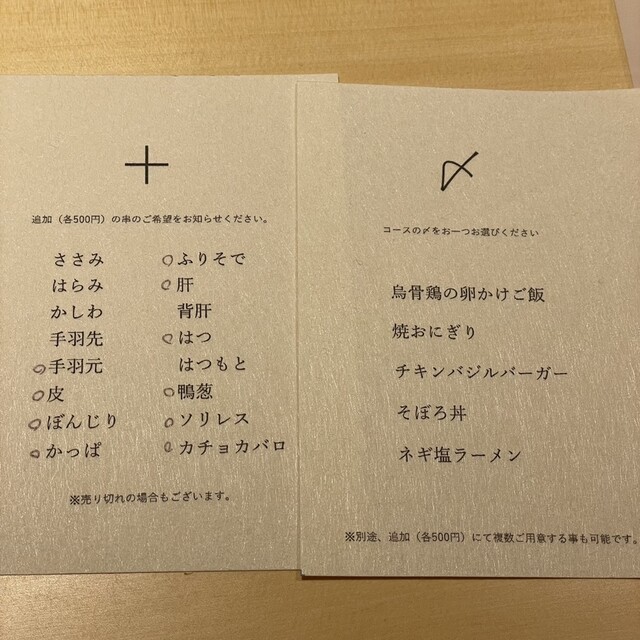 十
追加（各500円）の串のご希望をお知らせください。
ささみ
はらみ
かしわ
手羽先
○手羽元
○皮
○ぼんじり
○かっぱ
○ふりそで
○肝
背肝
○はつ
はつもと
○鴨葱
○ソリレス
○カチョカバロ
※売り切れの場合もございます。
〆
コースの〆をお一つお選びください
烏骨鶏の卵かけご飯
焼おにぎり
チキンバジルバーガー
そぼろ丼
ネギ塩ラーメン
※別途、追加（各500円）にて複数ご用意する事も可能です。